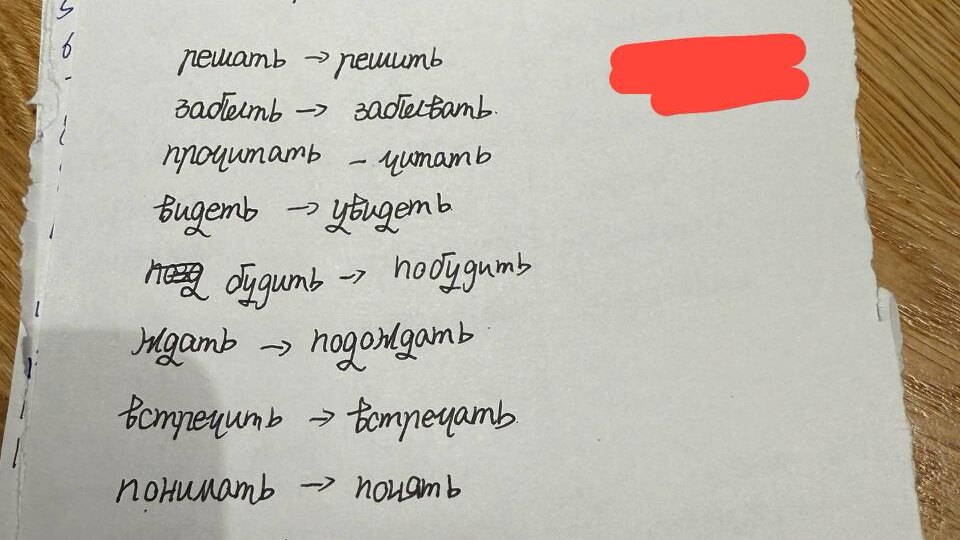 решать → решить
забыть → забывать.
прочитать – читать
видеть → увидеть
будить → побудить
ждать → подождать
встречить → встречать
понимать → понять